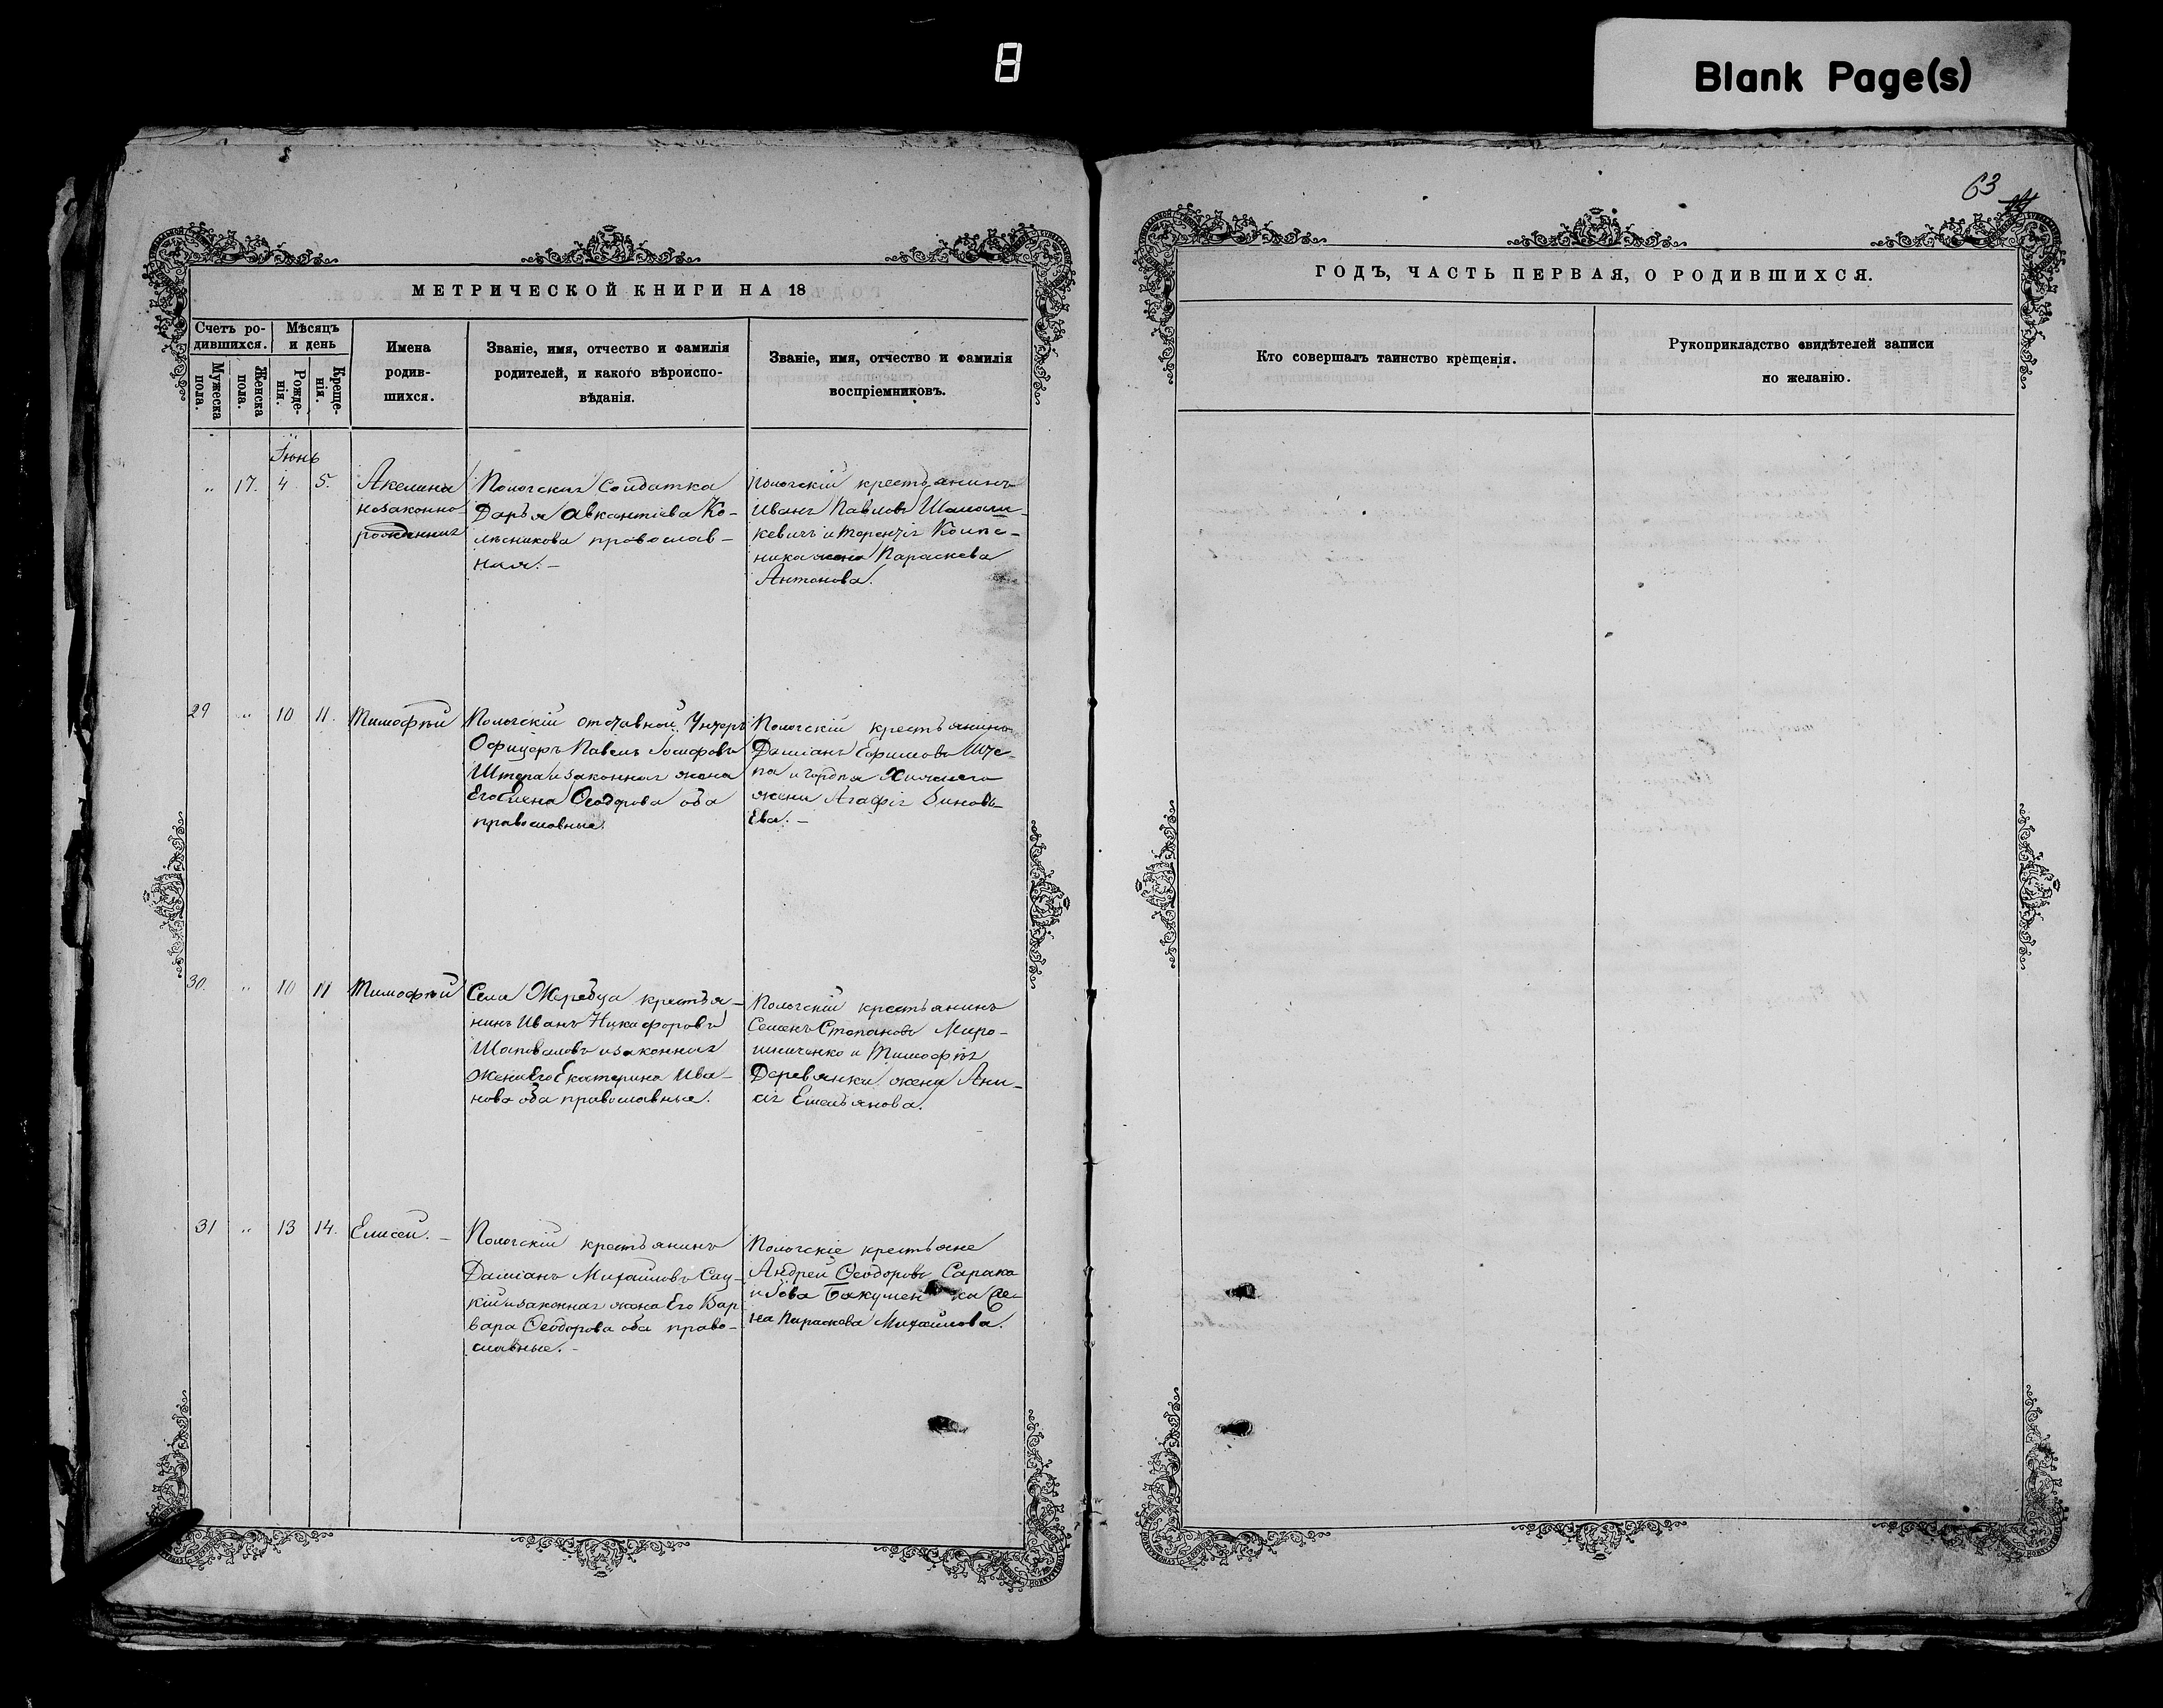 8
Blank Page(s)
63
МЕТРИЧЕСКОЙ КНИГИ НА 18
Счетъ ро-
дившихся.
Мѣсяцъ
и день
Мужеска
пола.
Женска
пола.
Рожде-
нія.
Креще-
нія.
Имена
родив-
шихся.
Званіе, имя, отчество и фамилія
родителей, и какого вѣроиспо-
вѣданія.
Званіе, имя, отчество и фамилія
воспріемниковъ.
Іюнь
" 17. 4 5.
Акелина
незаконно
рожденная
Пологская Солдатка
Дарья Авксентіева Ко-
лѣсникова православ-
ная. –
Пологскій крестьянинъ
Иванъ Павловъ
кевичъ и Терентія
жена Параскева
Антонова.
29 " 10 11.
Тимофѣй
Пологскій отставной Унтеръ
Офицеръ Павелъ Іосифовъ
Штепа и законная жена
Его Елена Ѳеодорова оба
православные.
Пологскій крестьянинъ
Даміанъ Ефимовъ Ште-
па и Гордѣя
жена Агафія Зиновь-
Ева. –
30. " 10 11
Тимофѣй
Села Жеребца крестья-
нинъ Иванъ Никифоровъ
Шаповаловъ и законная
жена Его Екатерина Ива-
нова оба православные.
Пологскій крестьянинъ
Семенъ Степановъ Миро-
шниченко и Тимофѣя
Деревянки жена Ани-
сія Емельянова.
31 " 13 14.
Елисей. –
Пологскій крестьянинъ
Даміанъ Михайловъ Сау-
кій и законная жена Его Вар
вара Ѳеодорова оба право-
славные. –
Пологскіе крестьяне
Андрей Ѳеодоровъ Сарака
и Іова
на Параскева Михайлова.
ГОДЪ, ЧАСТЬ ПЕРВАЯ, О РОДИВШИХСЯ.
Кто совершалъ таинство крещенія.
Рукоприкладство свидѣтелей записи
по желанію.